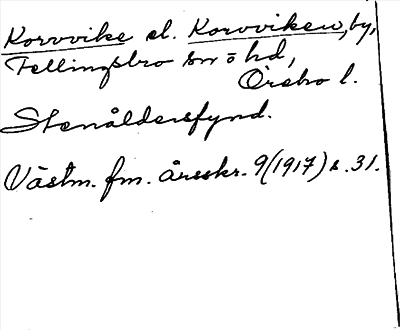 Korvvike el. Korvviken, by,
Fellingsbro sn o hd,
Örebro l.
Stenåldersfynd.
Västm. fm. årsskr. 9 (1917) s. 31.